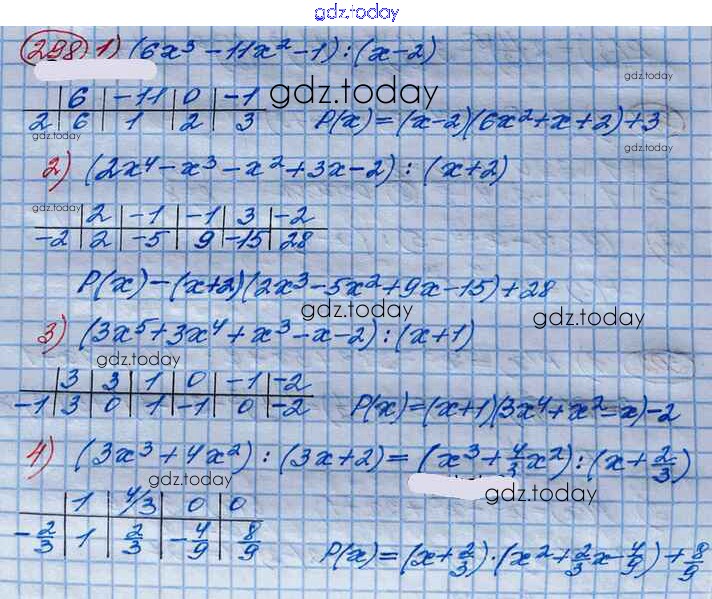 gdz.today
298 1) (6x³ - 11x² - 1) : (x - 2)
gdz.today
6 | -11 | 0 | -1 gdz.today
2 | 6 | 1 | 2 | 3 P(x) = (x-2)(6x²+x+2)+3
gdz.today gdz.today
2) (2x⁴ - x³ - x² + 3x - 2) : (x + 2)
gdz.today 2 | -1 | -1 | 3 | -2
-2 | 2 | -5 | 9 | -15 | 28
P(x) - (x+2)(2x³ - 5x² + 9x - 15) + 28
gdz.today gdz.today
3) (3x⁵ + 3x⁴ + x³ - x - 2) : (x + 1)
gdz.today
3 | 3 | 1 | 0 | -1 | -2
-1 | 3 | 0 | 1 | -1 | 0 | -2 P(x) = (x+1)(3x⁴ + x² - x) - 2
4) (3x³ + 4x²) : (3x + 2) = (x³ + 4/3 x²) : (x + 2/3)
gdz.today gdz.today
1 | 4/3 | 0 | 0
-2/3 | 1 | 2/3 | -4/9 | 8/9 P(x) = (x + 2/3) · (x² + 2/3 x - 4/9) + 8/9